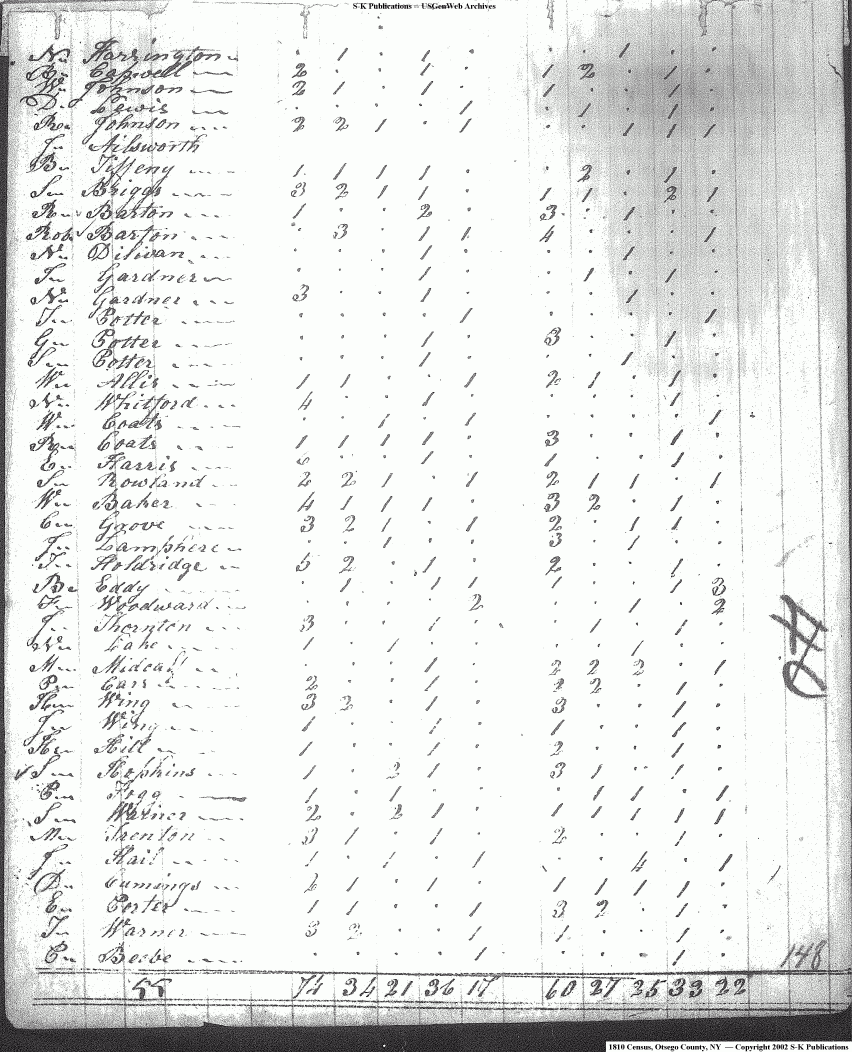 S-K Publications – USGenWeb Archives
N Harrington · 1 · 1 · · · 1 · ·
B Capwell 2 · · 1 · 1 2 · 1 ·
W Johnson 2 1 · 1 · 1 · · 1 ·
D Lewis · · · · 1 · 1 · 1 ·
Johnson 2 2 1 · 1 · · 1 1 1
J Ailsworth
B Tiffeny 1 1 1 1 · · 2 · 1 ·
S Briggs 3 2 1 1 · 1 1 · 2 1
R Barton 1 · · 2 · 3 · 1 · ·
Rob Barton · 3 · 1 1 4 · · · 1
N Dilivan · · · 1 · · · 1 · ·
T Gardner · · · 1 · · 1 · 1 ·
N Gardner 3 · · 1 · · · 1 · ·
Potter · · · · 1 · · · · 1
G Potter · · · 1 · 3 · · 1 ·
S Potter · · · 1 · · · 1 · ·
W Allis 1 1 · · 1 2 1 · 1 ·
N Whitford 4 · · · 1 · · · 1 ·
W Coats · · 1 · 1 · · · · 1
R Coats 1 1 1 1 · 3 · · 1 ·
E Harris · · 1 · 1 · · 1 ·
S Rowland 2 2 1 · 1 2 1 1 · 1
W Baker 4 1 1 1 · 3 2 · 1 ·
C Grove 3 2 1 · 1 2 · 1 1 ·
J Lamphere · · 1 · · 3 · 1 · ·
Holdridge 5 2 · 1 · 2 · · 1 ·
B Eddy · 1 · 1 1 1 · · 1 3
Woodward · · · · 2 · · 1 · 2
J Thornton 3 · · 1 · · 1 · 1 ·
Lake 1 · 1 · · · · 1 · ·
M · · · 1 · 2 2 2 · 1
Carr 2 · · 1 · 2 2 · 1 ·
Wing 3 2 · 1 · 3 · · 1 ·
J Wing 1 · · 1 · 1 · · 1 ·
H Hill 1 · · 1 · 2 · · 1 ·
S Hopkins 1 · 2 1 · 3 1 · 1 ·
Fogg 1 · 1 · · · 1 1 · 1
S Warner 2 · 2 1 · 1 1 1 1 1
M Trenton 3 1 · 1 · 2 · · 1 ·
J Hail 1 · 1 · 1 · · 4 · 1
D Cumings 2 1 · 1 · 1 1 1 1 ·
E Porter 1 1 · · 1 3 2 · 1 ·
Warner 3 2 · · 1 1 · · 1 ·
C Beebe · · · · 1 · · · 1 ·
148
55 74 34 21 36 17 60 27 25 33 22
1810 Census, Otsego County, NY — Copyright 2002 S-K Publications